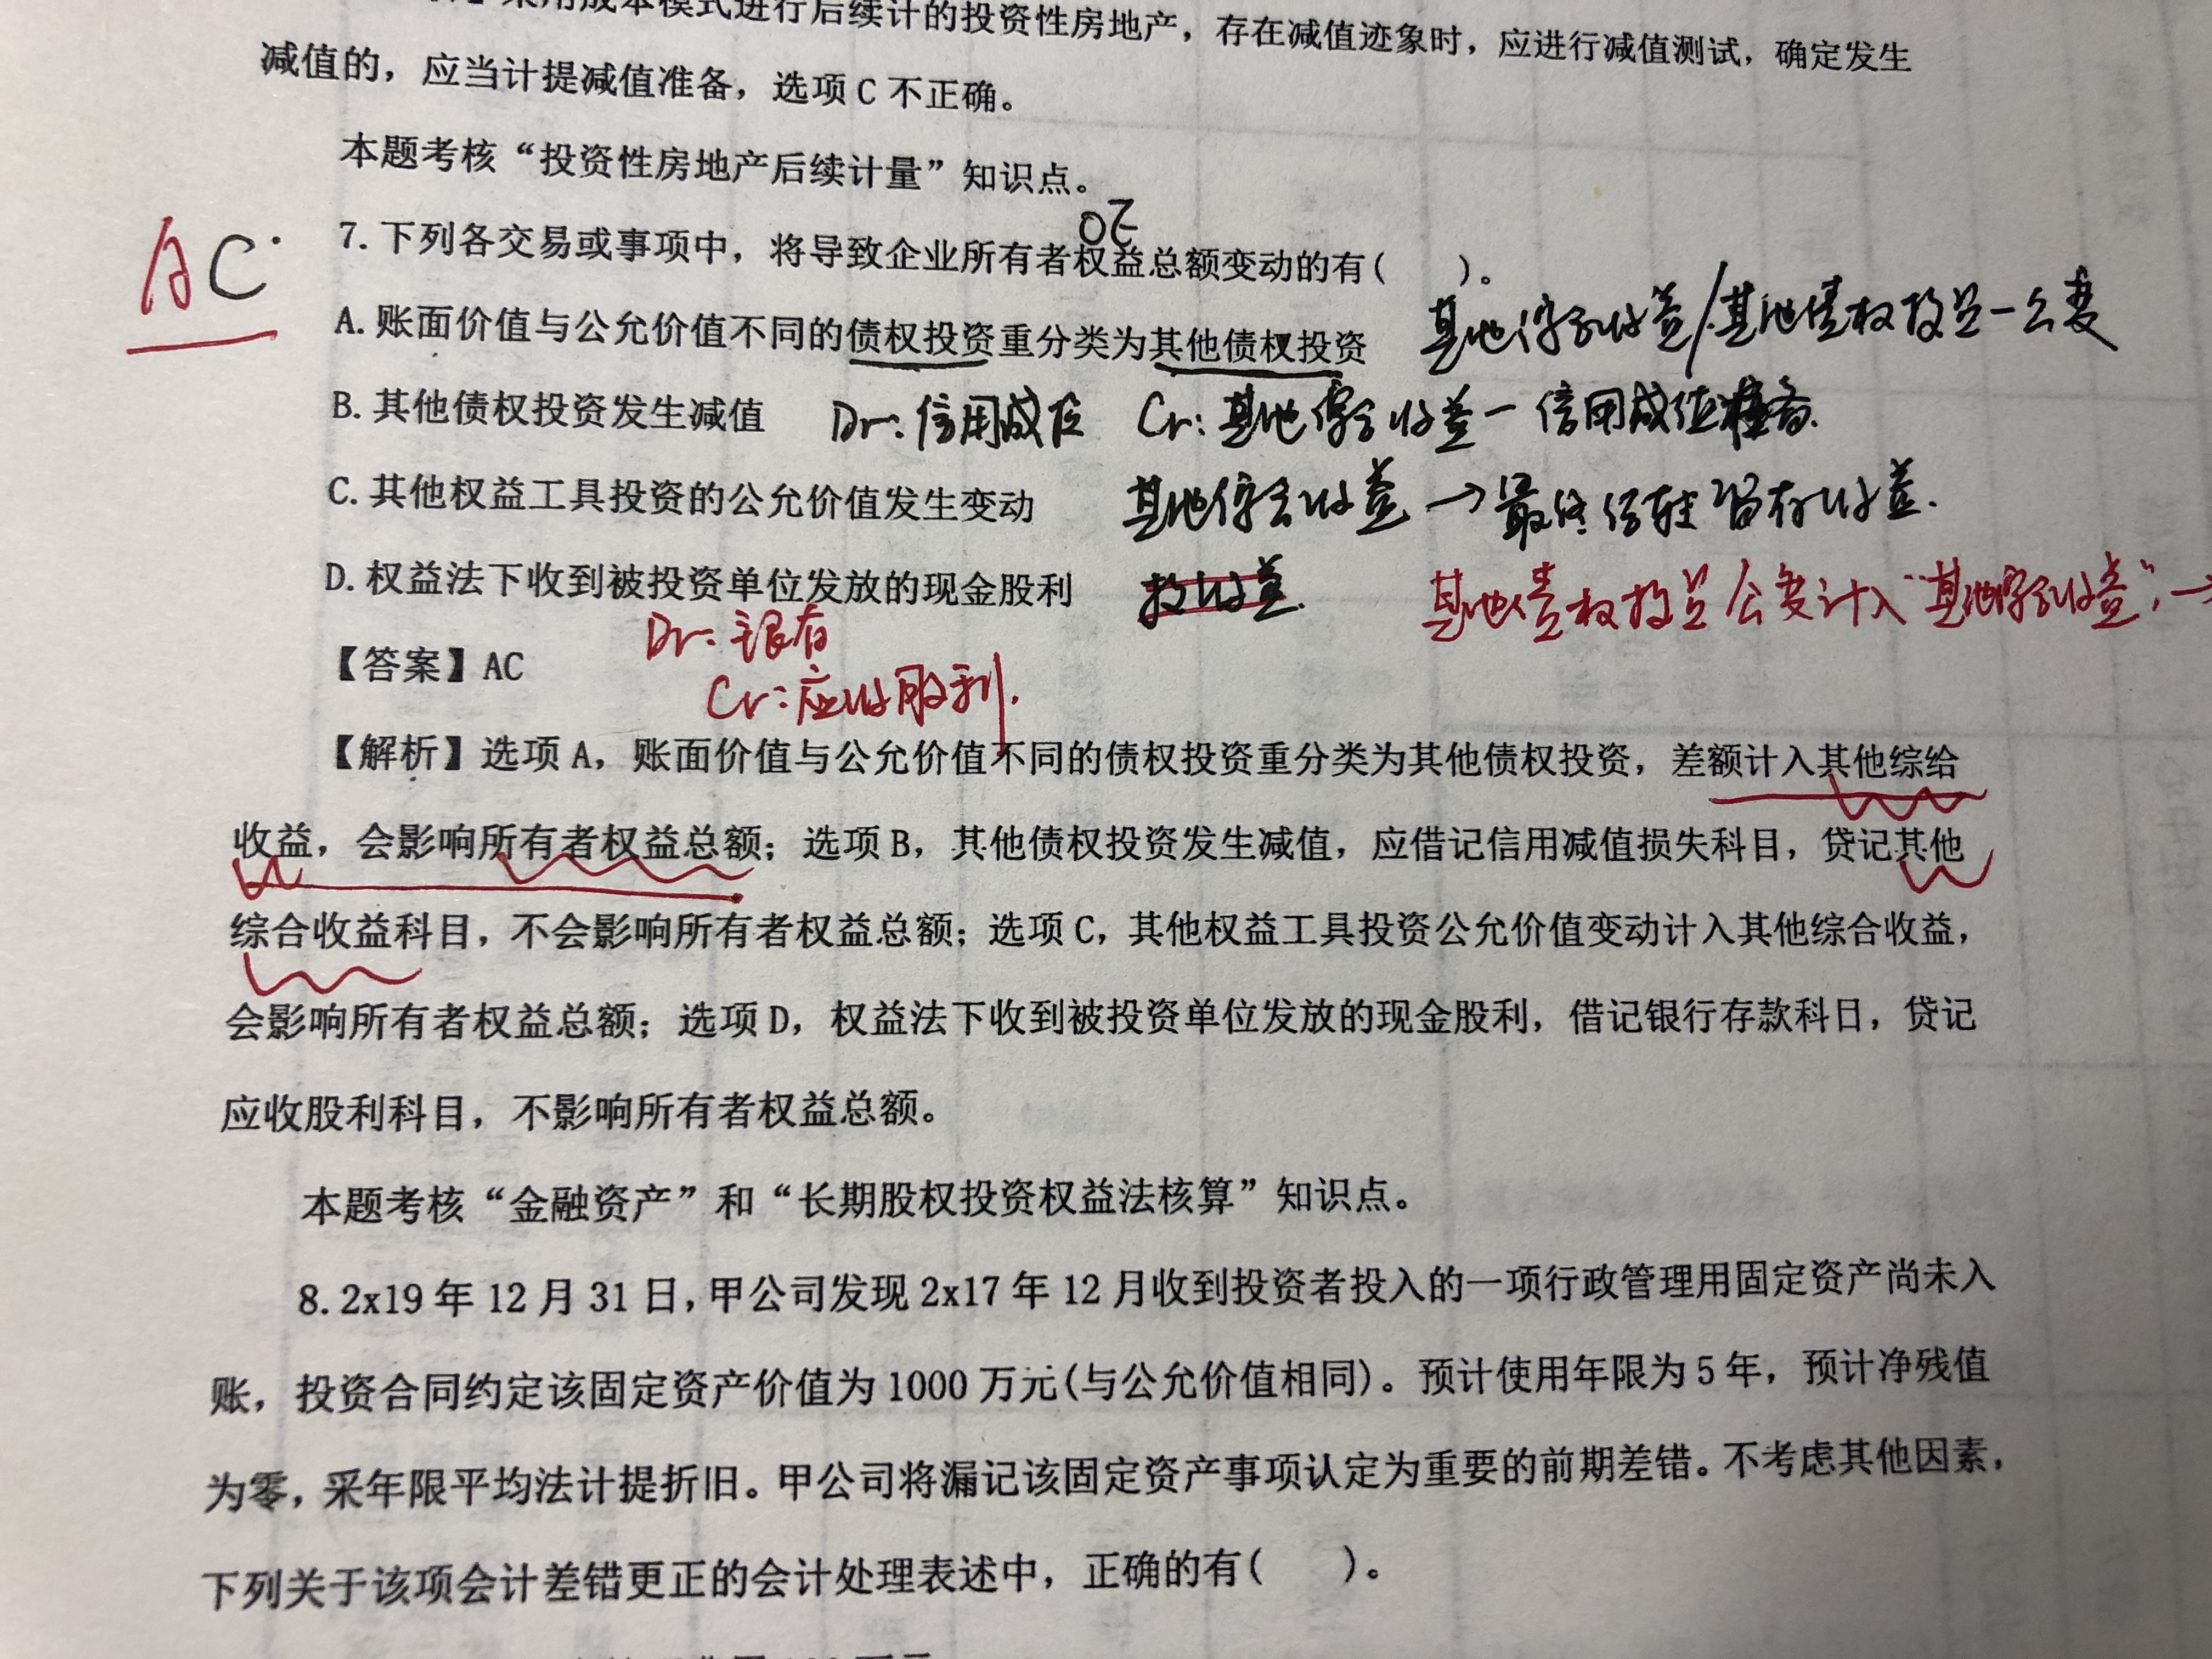 采用成本模式进行后续计的投资性房地产，存在减值迹象时，应进行减值测试，确定发生
减值的，应当计提减值准备，选项C不正确。
本题考核“投资性房地产后续计量”知识点。
AC.
7.下列各交易或事项中，将导致企业所有者权益总额变动的有(　　)。
A.账面价值与公允价值不同的债权投资重分类为其他债权投资 其他综合收益/其他债权投资—公变
B.其他债权投资发生减值 Dr:信用减值 Cr:其他综合收益—信用减值准备.
C.其他权益工具投资的公允价值发生变动 其他综合收益→最终结转留存收益.
D.权益法下收到被投资单位发放的现金股利 投收益. 其他债权投资公变计入“其他综合收益”,→
Dr:银存
【答案】AC
Cr:应收股利.
【解析】选项A，账面价值与公允价值不同的债权投资重分类为其他债权投资，差额计入其他综给
收益，会影响所有者权益总额；选项B，其他债权投资发生减值，应借记信用减值损失科目，贷记其他
综合收益科目，不会影响所有者权益总额；选项C，其他权益工具投资公允价值变动计入其他综合收益，
会影响所有者权益总额；选项D，权益法下收到被投资单位发放的现金股利，借记银行存款科日，贷记
应收股利科目，不影响所有者权益总额。
本题考核“金融资产”和“长期股权投资权益法核算”知识点。
8.2x19年12月31日,甲公司发现2x17年12月收到投资者投入的一项行政管理用固定资产尚未入
账，投资合同约定该固定资产价值为1000万元(与公允价值相同)。预计使用年限为5年，预计净残值
为零，采年限平均法计提折旧。甲公司将漏记该固定资产事项认定为重要的前期差错。不考虑其他因素，
下列关于该项会计差错更正的会计处理表述中，正确的有(　　)。